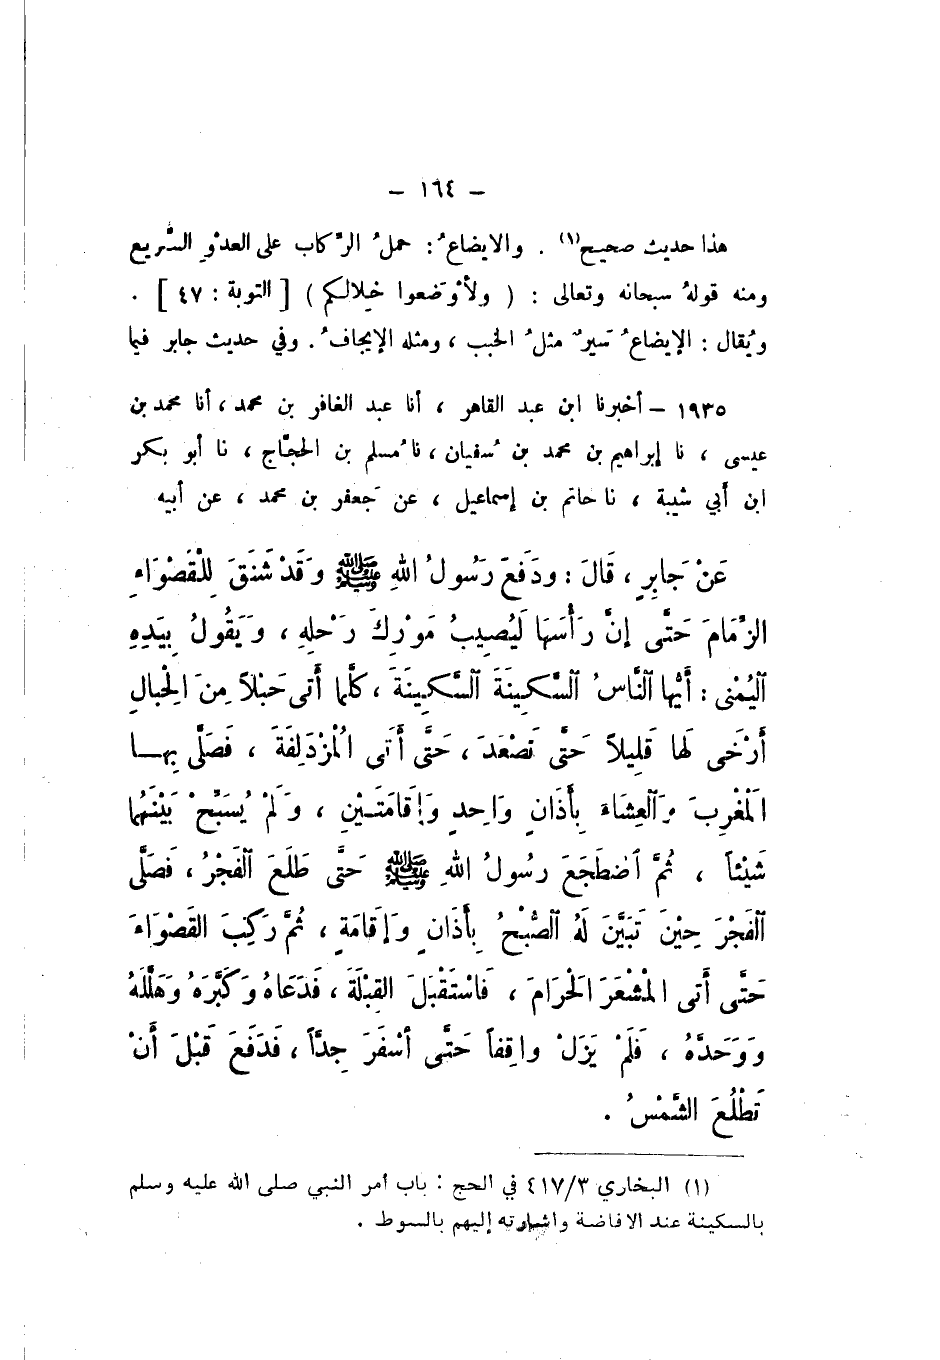 – ١٦٤ –
هذا حديث صحيح(١) . والايضاعُ : حملُ الرِّكاب على العدْوِ السَّريع
ومنه قولهُ سبحانه وتعالى : ( ولأوْضَعوا خلالكم ) [ التوبة : ٤٧ ] .
ويُقال : الإيضاعُ سَيرٌ مثلُ الخبب ، ومثله الإيجافُ . وفي حديث جابر فيما
١٩٣٥ – أخبرنا ابن عبد القاهر ، أنا عبد الغافر بن محمد ، أنا محمد بن
عيسى ، نا إبراهيم بن محمد بن سُفيان ، نا مُسلم بن الحجَّاج ، نا أبو بكر
ابن أبي شيبة ، نا حاتم بن إسماعيل ، عن جَعفر بن محمد ، عن أبيه
عَنْ جَابِرٍ ، قَالَ : ودَفَعَ رَسُولُ اللهِ ﷺ وَقَدْ شَنَقَ لِلْقَصْوَاءِ
الزِّمَامَ حَتَّى إنَّ رَأْسَهَا لَيُصِيبُ مَوْرِكَ رَحْلِهِ ، وَيَقُولُ بِيَدِهِ
الْيُمْنى : أَيُّها النَّاسُ السَّكِينَةَ السَّكِينَةَ ، كلَّما أَتى حَبْلاً مِنَ الحِبالِ
أَرْخَى لَها قَلِيلاً حَتَّى تَصْعَدَ ، حَتَّى أَتَى الْمُزْدَلِفَةَ ، فَصَلَّى بِهـا
المَغْرِبَ وَالْعِشَاءَ بِأَذَانٍ وَاحِدٍ وَإِقَامَتَـيْنِ ، وَلَمْ يُسَبِّحْ بَيْنَهُما
شَيْئاً ، ثُمَّ اضطَجَعَ رسُولُ اللهِ ﷺ حَتَّى طَلَعَ الْفَجْرُ ، فَصَلَّى
الْفَجْرَ حِيْنَ تَبَيَّنَ لَهُ الصُّبْحُ بِأَذَانٍ وَإِقَامَةٍ ، ثُمَّ رَكِبَ القَصْوَاءَ
حَتَّى أَتى المْشْعَرَ الحْرَامَ ، فَاسْتَقْبَلَ القِبْلَةَ ، فَدَعَاهُ وَكَبَّرَهُ وَهَلَّلَهُ
وَوَحَدَّهُ ، فَلَمْ يَزَلْ واقِفاً حَتَّى أسْفَرَ جِدَّاً ، فَدَفَعَ قَبْلَ أَنْ
تَطْلُعَ الشَّمْسُ .
(١) البخاري ٤١٧/٣ في الحج : باب أمر النبي صلى الله عليه وسلم
بالسكينة عند الافاضة واشارته إليهم بالسوط .